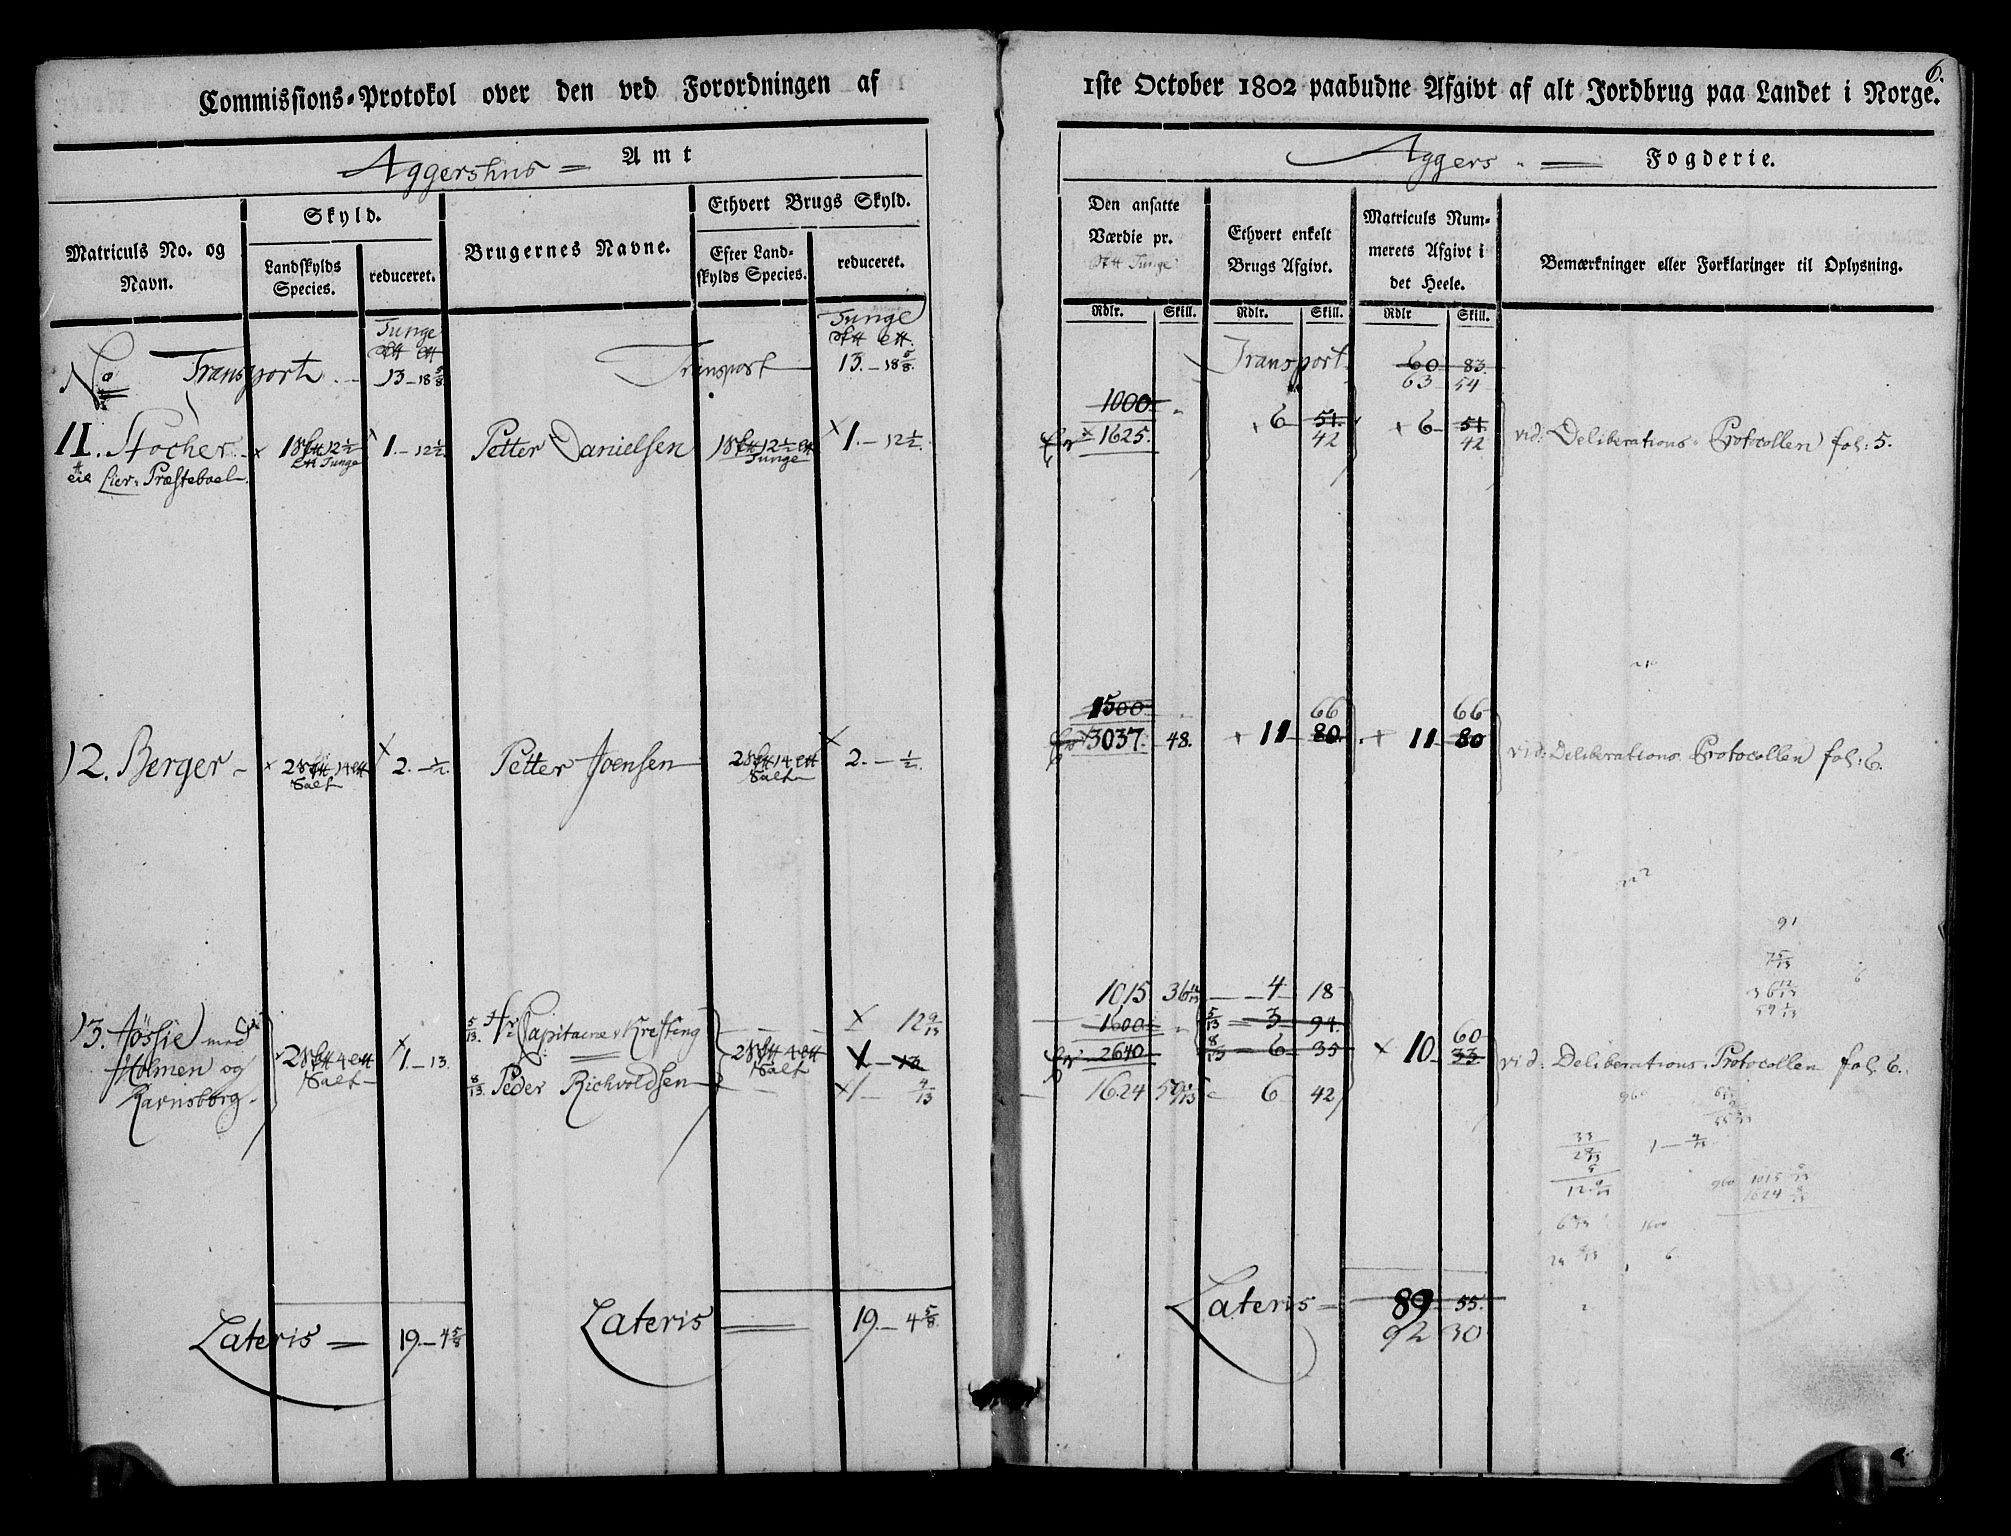 6.
Commissions-Protokol over den ved Forordningen af 1ste October 1802 paabudne Afgivt af alt Jordbrug paa Landet i Norge.
Aggershus = Amt
Aggers = Fogderie.
Matriculs No. og Navn.
Skyld.
Landskylds Species.
reduceret.
Brugernes Navne.
Ethvert Brugs Skyld.
Efter Landskylds Species.
reduceret.
Den ansatte Værdie pr.
Tunge
Ethvert enkelt Brugs Afgivt.
Matriculs Nummerets Afgivt i det Heele.
Bemærkninger eller Forklaringer til Oplysning.
Rdlr. Skill. Rdlr. Skill. Rdlr Skill.
Tunge Tunge
No Transport 13 - 18 5/8 Transport 13. - 18 5/8. Transport 60 83.
63 54
1000
11. Stocher 1 12 1/2 1. - 12 1/2 Petter Danielsen 1 12 1/2 1. - 12 1/2. 1625. 6 51 6 51
Tunge Tunge 42 42
vid: Deliberations Protocollen fol: 5.
Lier Præsteboel
1500 66 66
12. Berger - 2 14 2. - 1/2. Petter Joensen 2 14 2. - 1/2. 3037. 48. 11 80. 11 80
Salt Salt
vid: Deliberations Protocollen fol: 6.
91
36 12/13
59 1/13
1015 36 12/13 4 18
13. med 5/13. Hr Capitaine Krefting 12 9/13 1600 5/13 = 3 94. 60
Holmen og 2 4 1. - 13. 2 4 1 - 13 2640 8/13 6 35 10 33
Salt Salt
vid: Deliberations Protocollen fol. 6.
8/13. Peder Richvoldsen 1 - 4/13 1624 59 1/13 6 42
960
33
1 - 4/13
12. 9/13
960 1015
1624
1600
6
Lateris = 19. - 4 5/8 Lateris = 19. - 4 5/8. Lateris = 89 55.
92 30